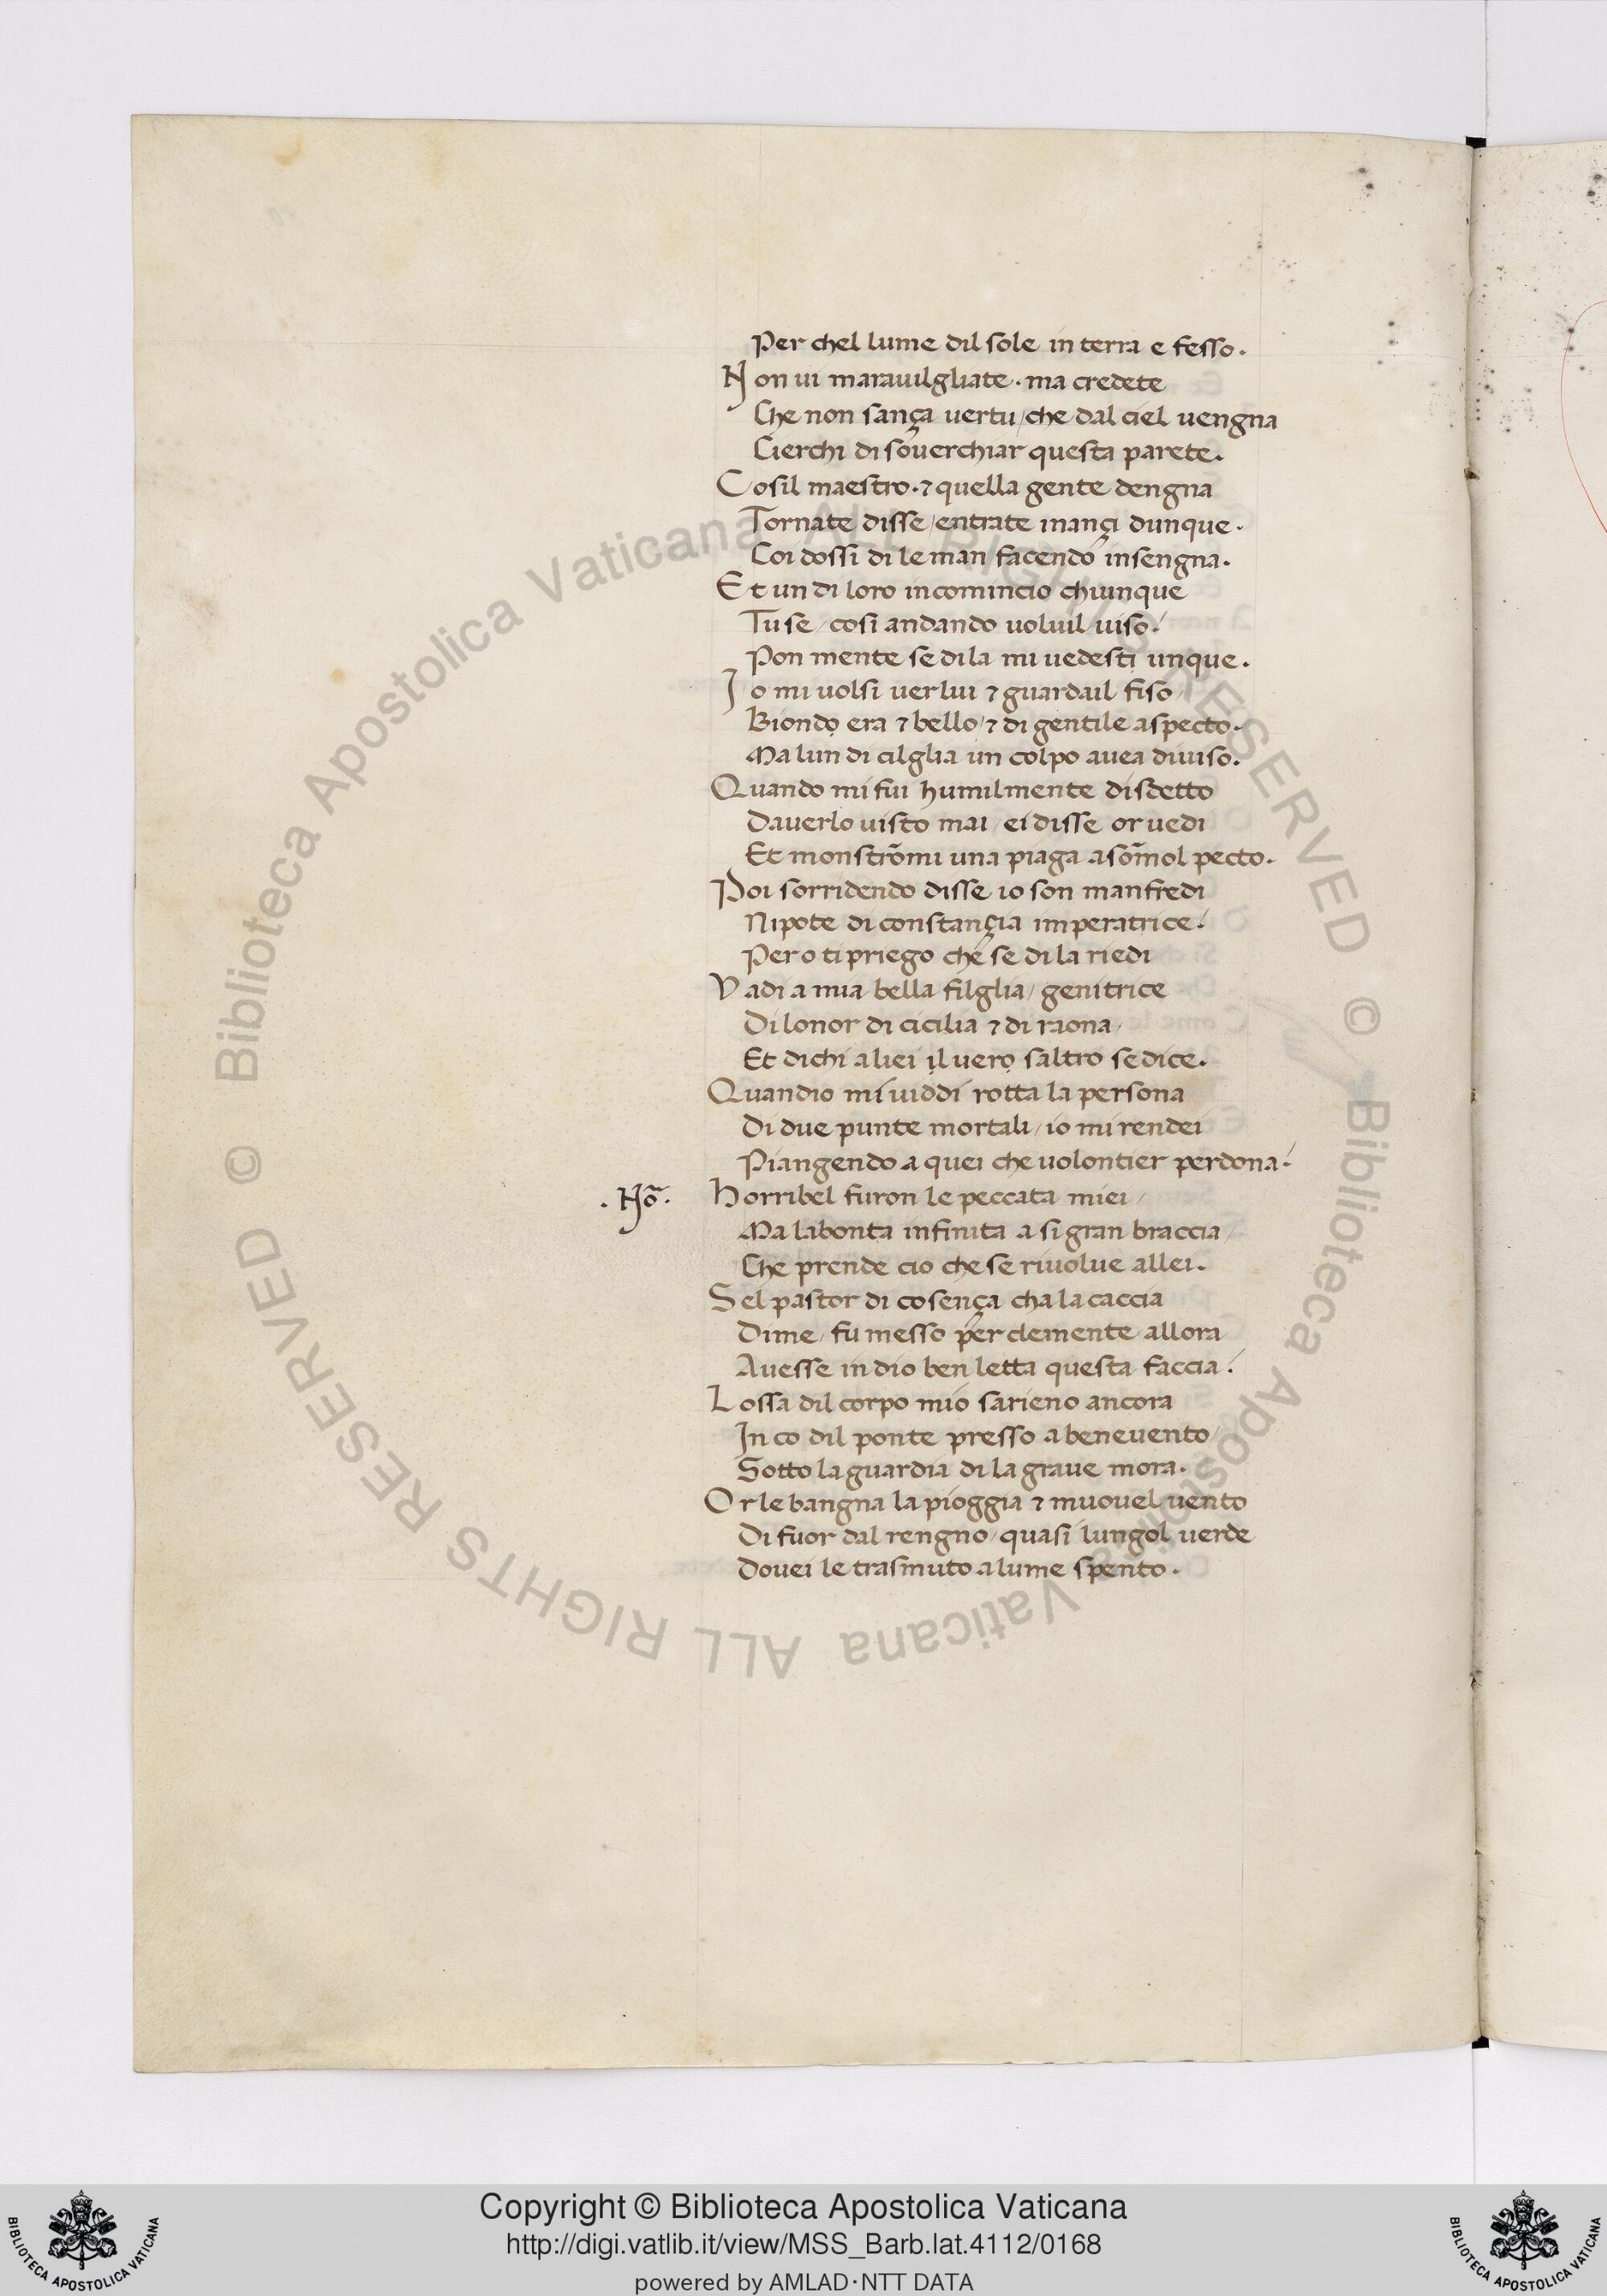 Per chel lume dil sole in terra e fesso.
Non ui marauilgliate. ma credete
Che non sança uertu / che dal ciel uengna
Cierchi di souerchiar questa parete.
Cosil maestro. ⁊ quella gente dengna
Tornate disse / entrate inançi dunque.
Coi dossi di le man facendo insengna.
Et un di loro incomincio chiunque
Tu se / cosi andando uoluil uiso /
Pon mente se di la mi uedesti unque.
Io mi uolsi uer lui ⁊ guardail fiso /
Biondọ era ⁊ bello / ⁊ di gentile aspecto.
Ma lun di cilglia un colpo auea diuiso.
Quando mi fui humilmente disdetto
Dauerlo uisto mai / ei disse or uedi
Et monstrōmi una piaga a sōmol pecto.
Poi sorridendo disse io son manfredi
Nipote di constançia imperatrice /
Pero ti priego che se di la riedi
Vadi a mia bella filglia / genitrice
Di lonor di cicilia ⁊ di raona /
Et dichi a liei ịl uerọ saltro se dice.
Quandio mi uiddi rotta la persona
Di due punte mortali / io mi rendei
Piangendo a quei che uolontier perdona /
.Nō. Horribel furon le peccata miei /
Ma la bonta infinita a si gran braccia /
Che prende cio che se riuolue allei.
Sel pastor di cosença cha la caccia
Di me / fu messo per clemente allora
Auesse in dio ben letta questa faccia /
Lossa dil corpo mio sarieno ancora
In co dil ponte presso a beneuento /
Sotto la guardia di la graue mora.
Or le bangna la pioggia ⁊ muouel uento
Di fuor dal rengno / quasi lungol uerde
Douei le trasmuto a lume spento.
© Biblioteca Apostolica Vaticana ALL RIGHTS RESERVED © Biblioteca Apostolica Vaticana ALL RIGHTS RESERVED
Copyright © Biblioteca Apostolica Vaticana
http://digi.vatlib.it/view/MSS_Barb.lat.4112/0168
powered by AMLAD·NTT DATA
BIBLIOTECA APOSTOLICA VATICANA
BIBLIOTECA APOSTOLICA VATICANA